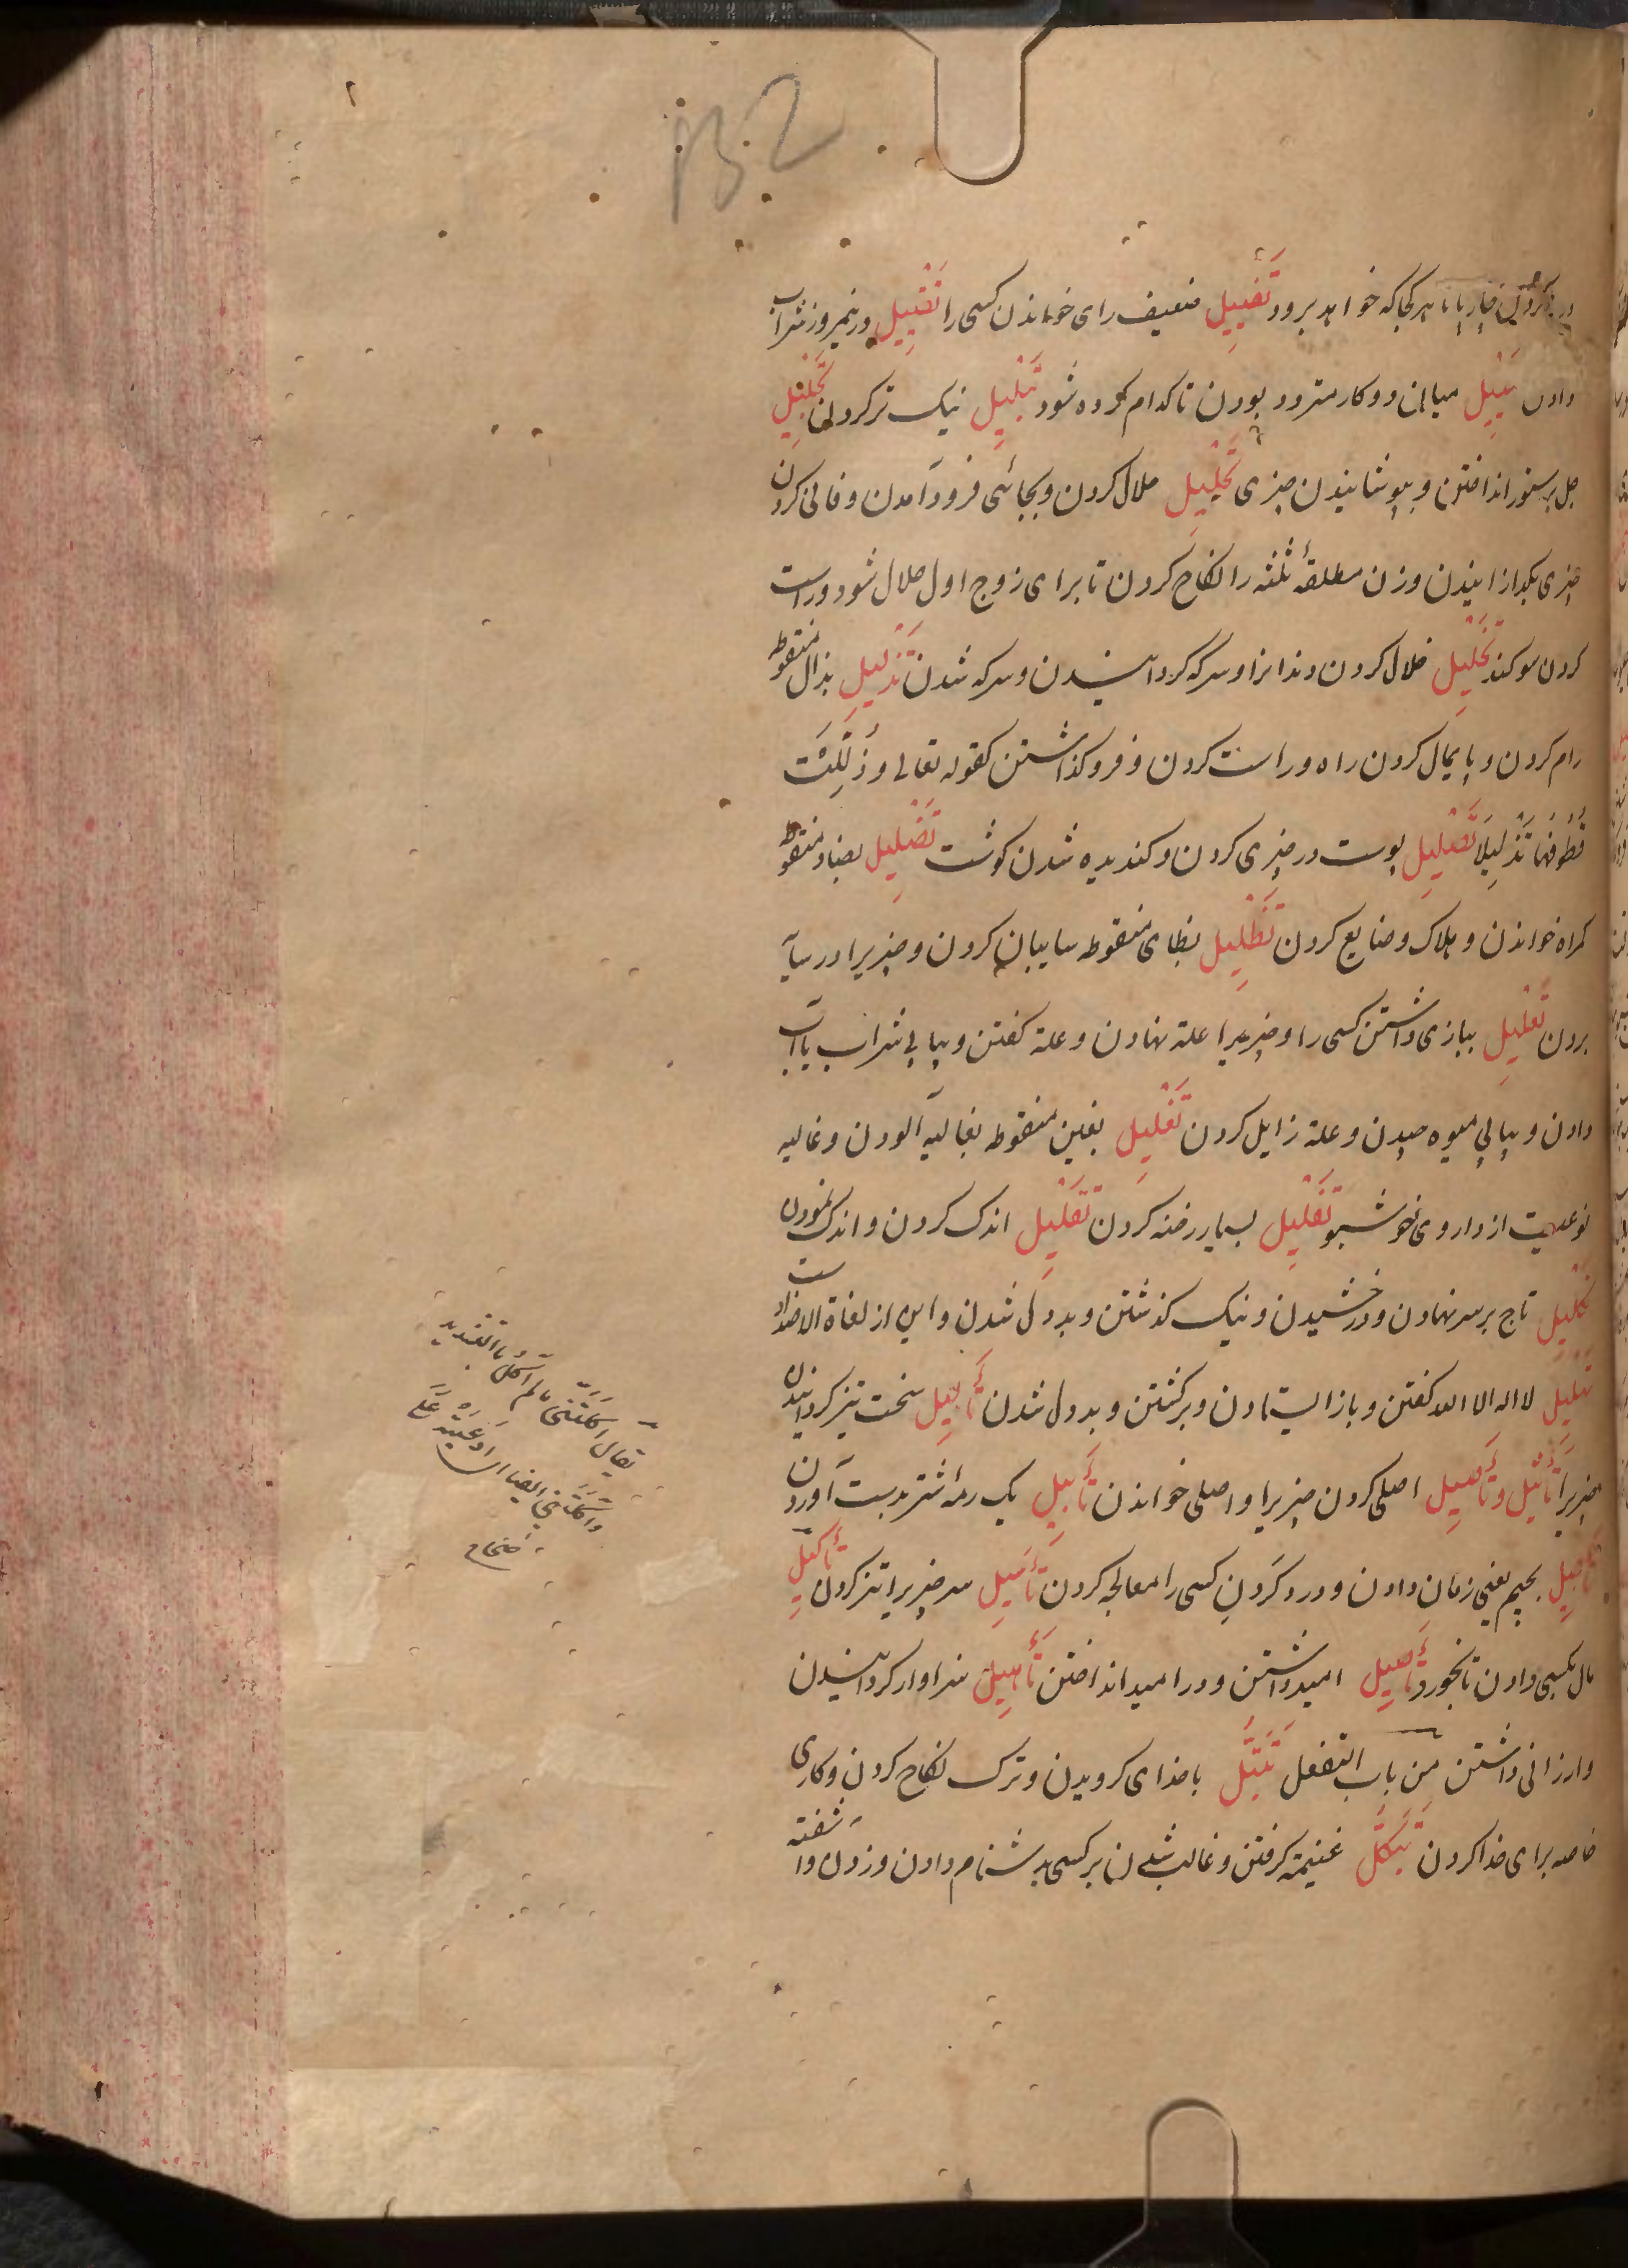 B2
کردن چارپا تا هر کجا که خواهد برود تَفْیِیل ضعیف رای خواندن کسی را تَقْیِیل در نیمروز شراب
دادن تَمْیِیل میان دو کار متردد بودن تا کدام کرده شود تَبْلِیل نیک تر کردن تَجْلِیل
جل بر ستور انداختن و بپوشانیدن چیزی تَحْلِیل حلال کردن و بجائی فرود آمدن و خالی کردن
چیزی بگدازانیدن و زن مطلقهٔ ثلثه را نکاح کردن تا برای زوج اول حلال شود و راست
کردن سوکند تَخْلِیل خلال کردن دندانرا و سرکه کردانیدن و سرکه شدن تَذْلِیل بذال منقوطه
رام کردن و پایمال کردن راه و راست کردن و فرو کذاشتن کقوله تعالی وَذُلِّلَتْ
قُطُوفُهَا تَذْلِیلاً تَصْلِیل پوست در چیزی کردن و کندیده شدن کوشت تَضْلِیل بضاد منقوطه
کمراه خواندن و هلاک و ضایع کردن تَظْلِیل بظای منقوطه سایبان کردن و چیزیرا در سایه
بردن تَعْلِیل ببازی داشتن کسی را و چیزیرا علة نهادن و علة کفتن و پیاپی شراب یا آب
دادن و پیاپی میوه چیدن و علة زایل کردن تَغْلِیل بغین منقوطه بغالیه آلودن و غالیه
نوعیت از داروی خوشبو تَفْلِیل بسیار رخنه کردن تَقْلِیل اندک کردن و اندک نمودن
تَکْلِیل تاج بر سر نهادن و درخشیدن و نیک کذشتن و بددل شدن و این از لغاة الاضداد ست
تَهْلِیل لا اله الا الله کفتن و باز ایستادن و برکشتن و بددل شدن تَأْلِیل سخت تیز کردانیدن
چیزیرا تَأْثِیل و تَأْصِیل اصلی کردن چیزیرا و اصلی خواندن تَأْبِیل یک رمهٔ شتر بدست آوردن
تَأْجِیل بجیم یعنی زمان دادن و درد کردن کسی را معالجه کردن تَأْسِیل سر چیزیرا تیز کردن تَأْکِیل
مال بکسی دادن تا بخورد تَأْمِیل امید داشتن و در امید انداختن تَأْهِیل سزاوار کردانیدن
و ارزانی داشتن من باب التفعل تَبَتُّل با خدای کرویدن و ترک نکاح کردن و کاری
خاصه برای خدا کردن تَبَکُّل غنیمة کرفتن و غالب شدن بر کسی بدشنام دادن و زدن و آشفته
یقال اَکَّلْتَنِی مالم آکُلْ بالتشدید
وَآکَلْتَنِی ایضا ای ادّعیتَه عَلَیَّ
صحاح